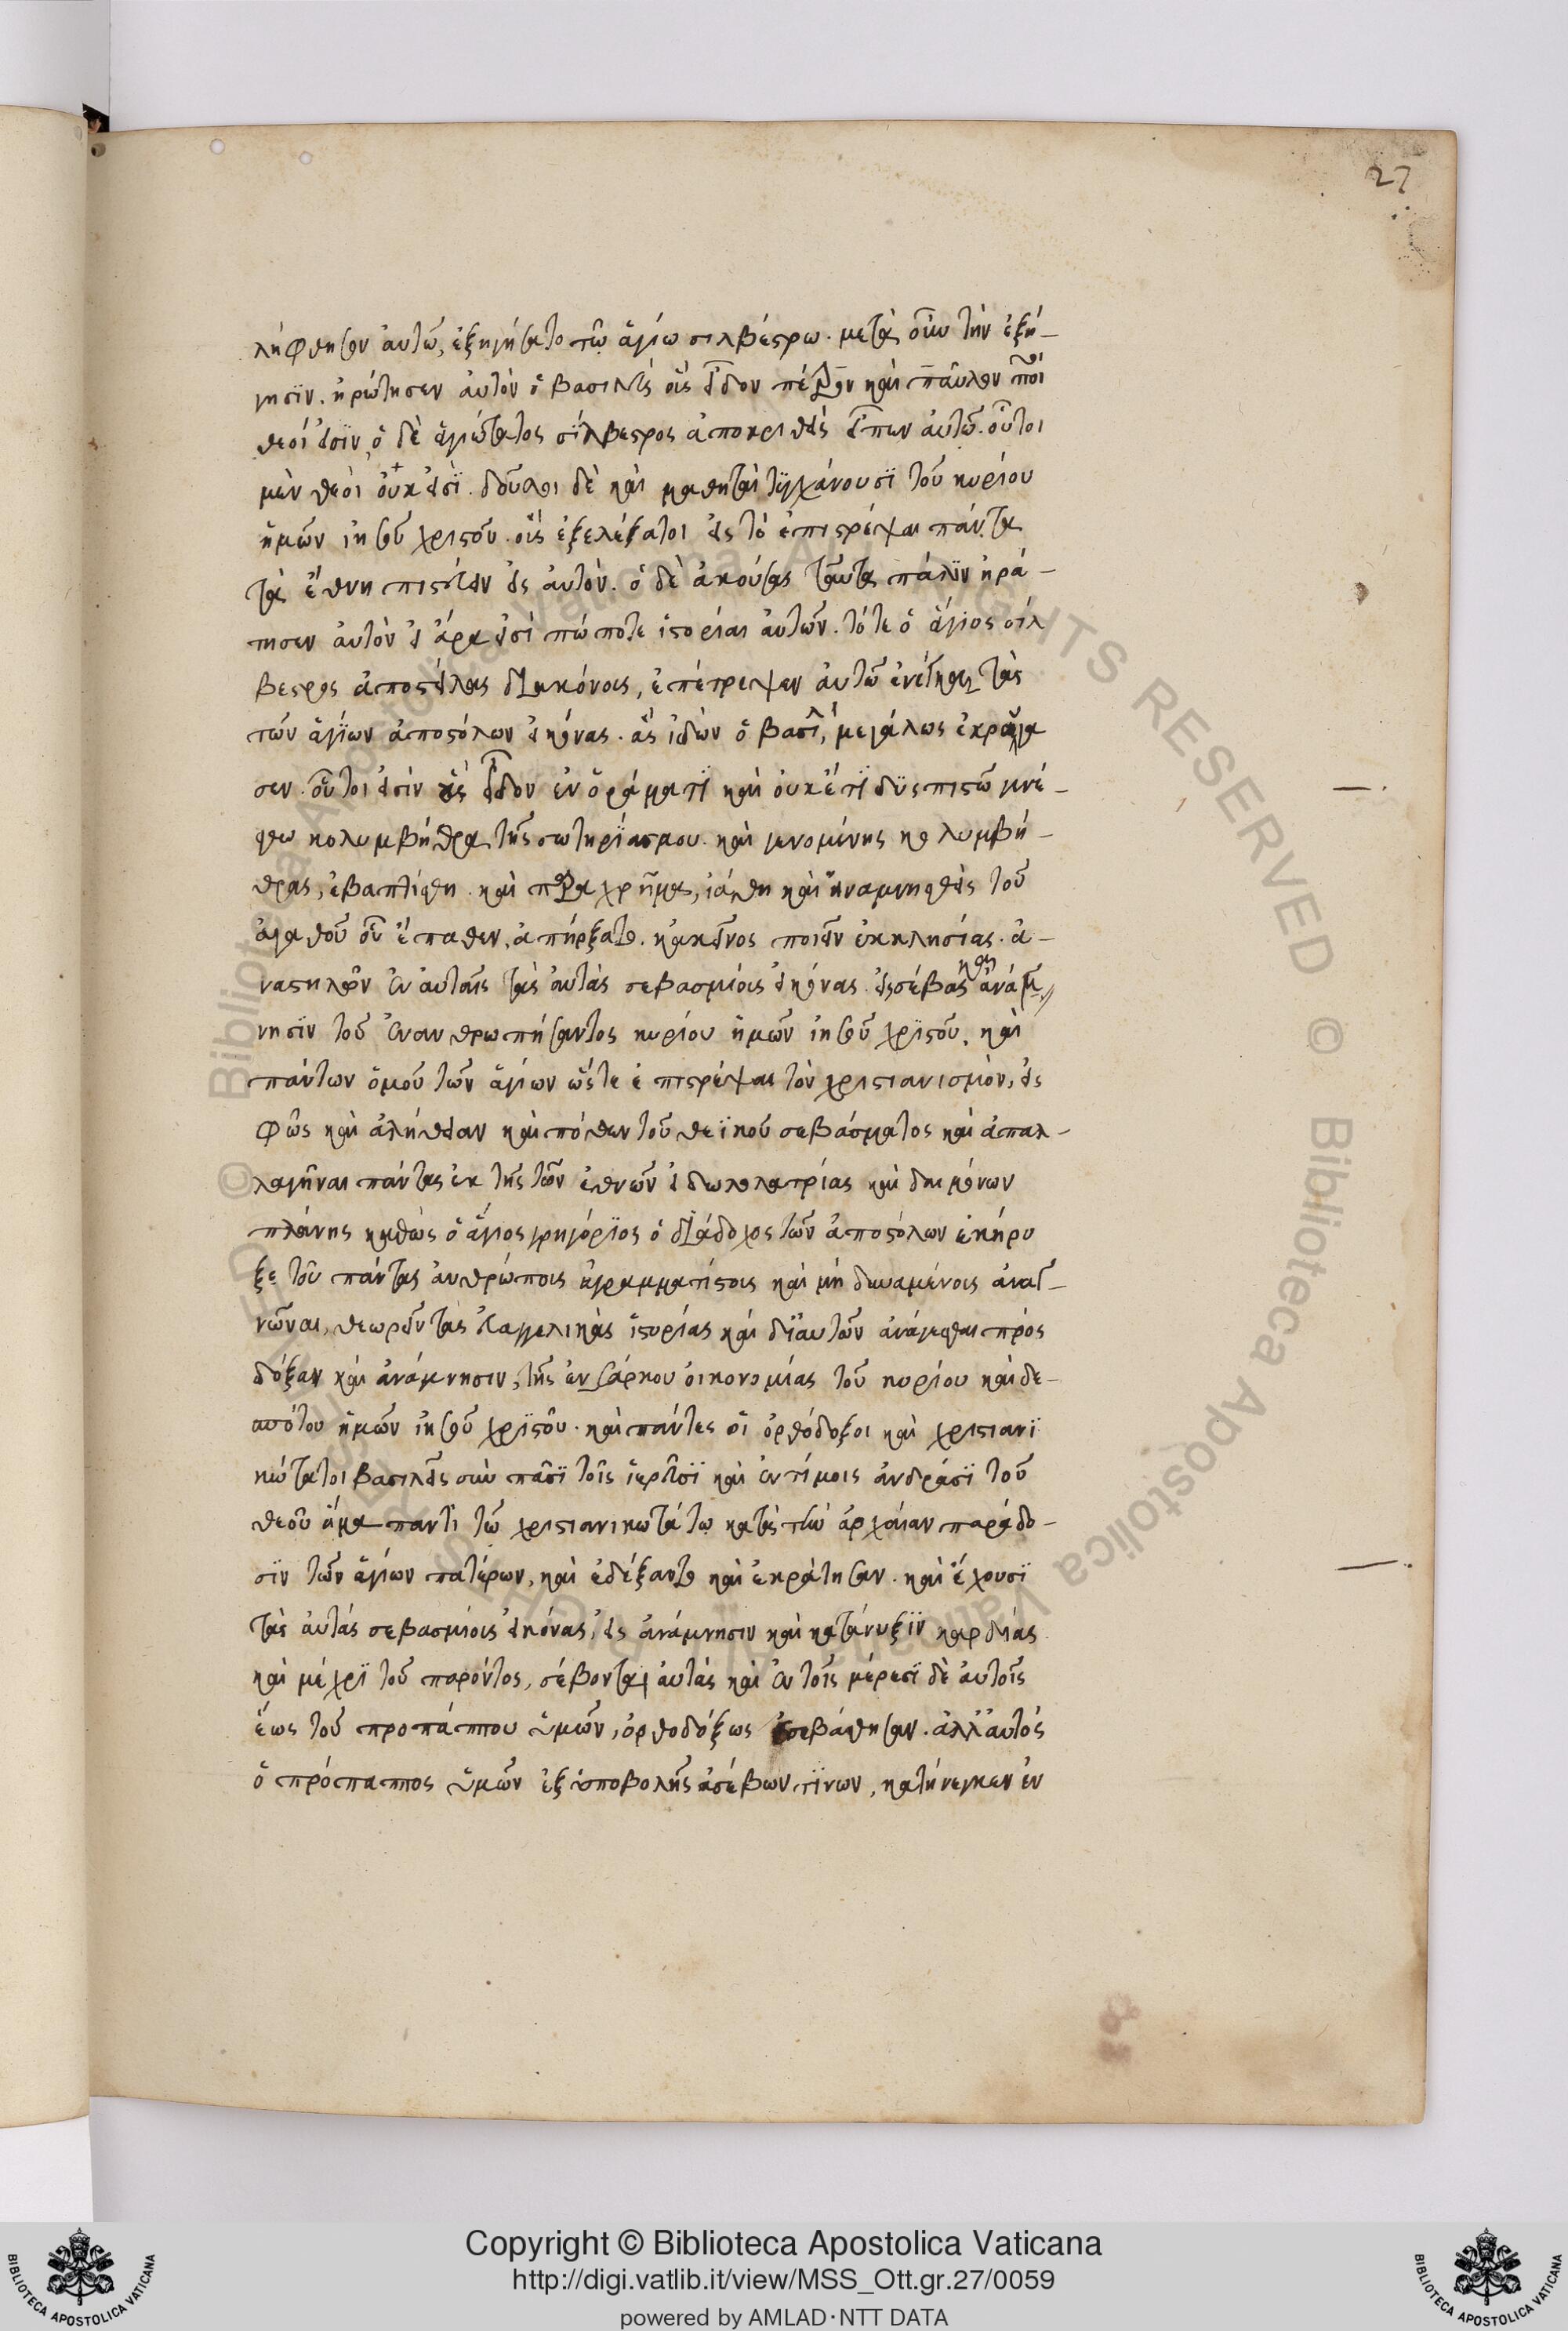 27
λήφθησαν αὐτῶ, ἐξηγήσατο τῶ ἁγίω σιλβέστρω. μετὰ οὖν τὴν ἐξή-
γησϊν. ἠρώτησεν αὐτὸν ὁ βασιλεὺς οὓς εἶδον πέτρον καὶ παῦλον ποῖοι
θεοί εἰσϊν, ὁ δὲ ἁγιώτατος σΐλβεστρος ἀποκριθεὶς εἶπεν αὐτῶ. οὗτοι
μὲν θεοὶ οὐκ εἰσῒ. δοῦλοι δὲ καὶ μαθηταὶ τυγχάνουσϊ τοῦ κυρίου
ἡμῶν ἰησοῦ χριστοῦ. οὓς ἐξελέξατοι εἰς τὸ ἐπιστρέψαι πάντα
τὰ ἔθνη πιστεύειν εἰς αὐτὸν. ὁ δὲ ἀκούσας ταῦτα πάλϊν ἠρώ-
τησεν αὐτὸν εἰ ἄρα εἰσὶ πώποτε ἱστορίαι αὐτῶν. τότε ὁ ἅγιος σίλ
βεστρος ἀποστείλας διακόνοις, ἐπέτρεψεν αὐτῶ τὰς
τῶν ἁγΐων ἀποστόλων εἰκόνας. ἃς ἰδὼν ὁ βασιλ, μεγάλως ἐκραύγα
σεν. οὗτοι εἰσὶν οὓς εἶδον ἐν ὁράματϊ καὶ οὐκέτϊ δϋσπιστῶ γινέ-
σθω κολυμβήθρα τῆς σωτηρΐας μου. καὶ γενομένης κολυμβή-
θρας, ἐβαπτίσθη. καὶ παραχρῆμα, ἰάθη καὶ ἀναμνησθεὶς τοῦ
ἀγαθοῦ οὗ ἔπαθεν, ἀπήρξατο. κἀκεῖνος ποιεῖν ἐκκλησίας. ἀ-
ναστηλῶν ἐν αὐταῖς τὰς αὐτὰς σεβασμίοις εἰκόνας. εἰς σέβας καὶ ἀνάμ-
νησϊν τοῦ ἐνανθρωπήσαντος κυρίου ἡμῶν ἰησοῦ χρϊστοῦ. καὶ
πάντων ὁμοῦ τῶν ἁγίων ὥστε ἐπιστρέψαι τὸν χριστιανισμὸν, εἰς
φῶς καὶ ἀλήθειαν καὶ πόθεν τοῦ θεϊκοῦ σεβάσματος καὶ ἀπαλ-
λαγῆναι πάντας ἐκ τῆς τῶν ἐθνῶν εἰδωλολατρίας καὶ δαιμόνων
πλάνης καθὼς ὁ ἅγιος γρηγόρϊος ὁ δϊάδοχος τῶν ἀποστόλων ἐκήρυ
ξε τοῦ πάντας ἀνθρώποις ἀγραμματίστοις καὶ μὴ δυναμένοις ἀναγ-
νῶναι, θεωρεῖν τὰς εὐαγγελικὰς ἱστορίας καὶ δϊ αὐτῶν ἀνάγεσθαι πρὸς
δόξαν καὶ ἀνάμνησιν, τῆς ἐνσάρκου οἰκονομίας τοῦ κυρίου καὶ δε-
σπότου ἡμῶν ἰησοῦ χρϊστοῦ. καὶ πάντες οἱ ὀρθόδοξοι καὶ χριστιανϊ
κώτατοι βασιλεῖς σὺν πᾶσϊ τοῖς ἱερεῦσϊ καὶ ἐντίμοις ἀνδράσϊ τοῦ
θεοῦ ἅμα παντὶ τῶ χριστιανικωτάτω κατὰ τὴν ἀρχαίαν παράδο-
σϊν τῶν ἁγίων πατέρων, καὶ ἐδέξαντο καὶ ἐκράτησαν. καὶ ἔχουσϊ
τὰς αὐτὰς σεβασμίοις εἰκόνας, εἰς ἀνάμνησιν καὶ κατάνυξϊν καρδίας
καὶ μέχρϊ τοῦ παρόντος, σέβονται αὐτὰς καὶ ἐν τοῖς μέρεσϊ δὲ αὐτοῖς
ἕως τοῦ προπάππου ὑμῶν, ὀρθοδόξως ἐσεβάσθησαν. ἀλλ' αὐτὸς
ὁ πρόπαππος ὑμῶν ἐξ ὑποβολῆς ἀσέβων τϊνων, κατήνεγκεν ἐν
© Biblioteca Apostolica Vaticana ALL RIGHTS RESERVED
Copyright © Biblioteca Apostolica Vaticana
http://digi.vatlib.it/view/MSS_Ott.gr.27/0059
powered by AMLAD·NTT DATA
BIBLIOTECA APOSTOLICA VATICANA
BIBLIOTECA APOSTOLICA VATICANA